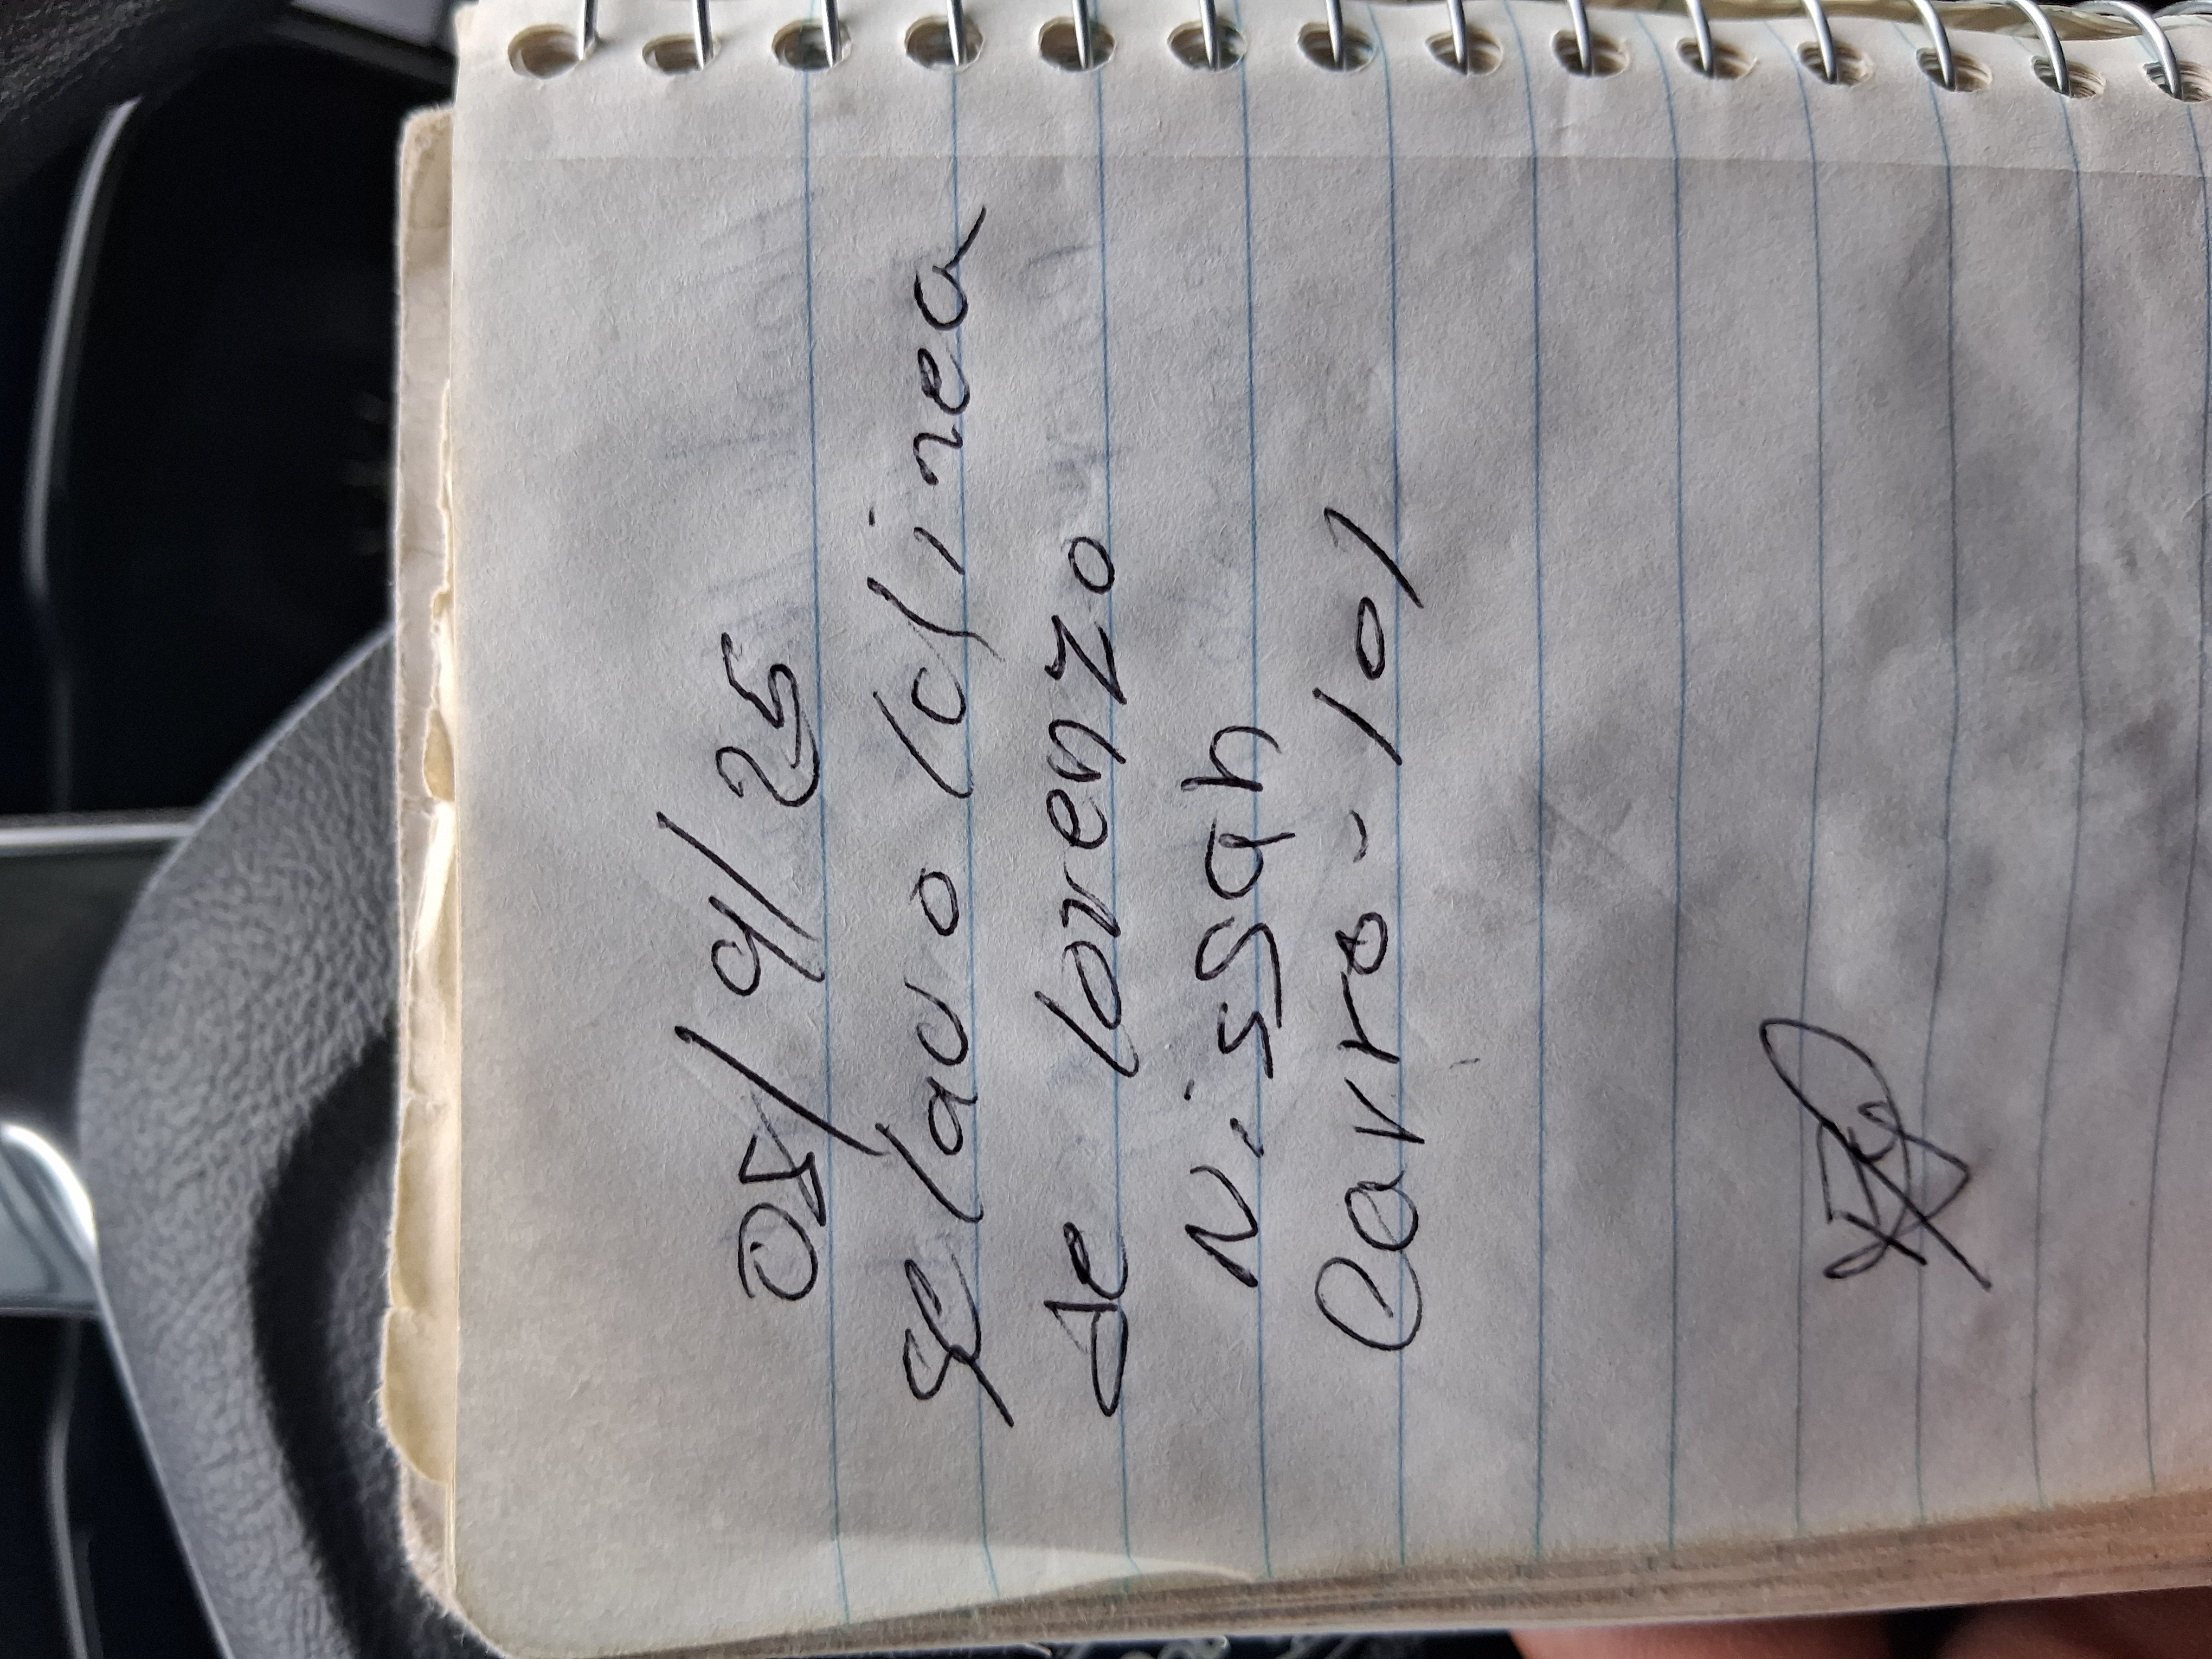 05/9/25
se lavo ld linea
de lorenzo
Nissan
Carro-101